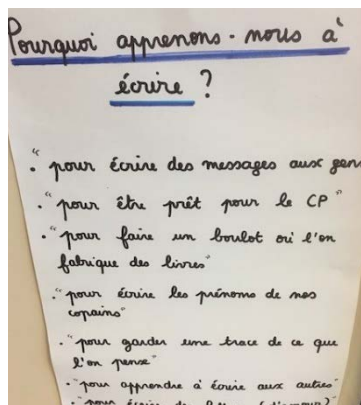 Pourquoi apprenons-nous à
écrire ?
. "pour écrire des messages aux gens
. "pour être prêt pour le CP"
. "pour faire un boulot où l'on
fabrique des livres"
. "pour écrire les prénoms de nos
copains"
. "pour garder une trace de ce que
l'on pense"
. "pour apprendre à écrire aux autres"
. "pour écrire des